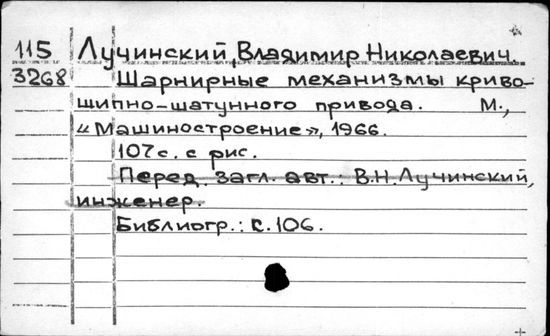 115 Лучинский, Владимир Николаевич
3268 Шарнирные механизмы криво-
шипно-шатунного привода. М.,
«Машиностроение», 1966.
107 с. с рис.
Перед загл. авт.: В.Н. Лучинский,
инженер.
Библиогр.: с. 106.